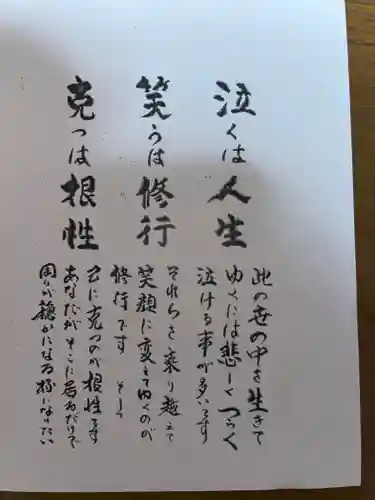 泣くは人生
笑うは修行
克つは根性
此の世の中を生きて
ゆくには悲しくつらく
泣ける事が多いです
それらを乗り越えて
笑顔に変えてゆくのが
修行です そして
己に克つのが根性です
あなたがそこに居るだけで
周りが穏かになる様になりたい